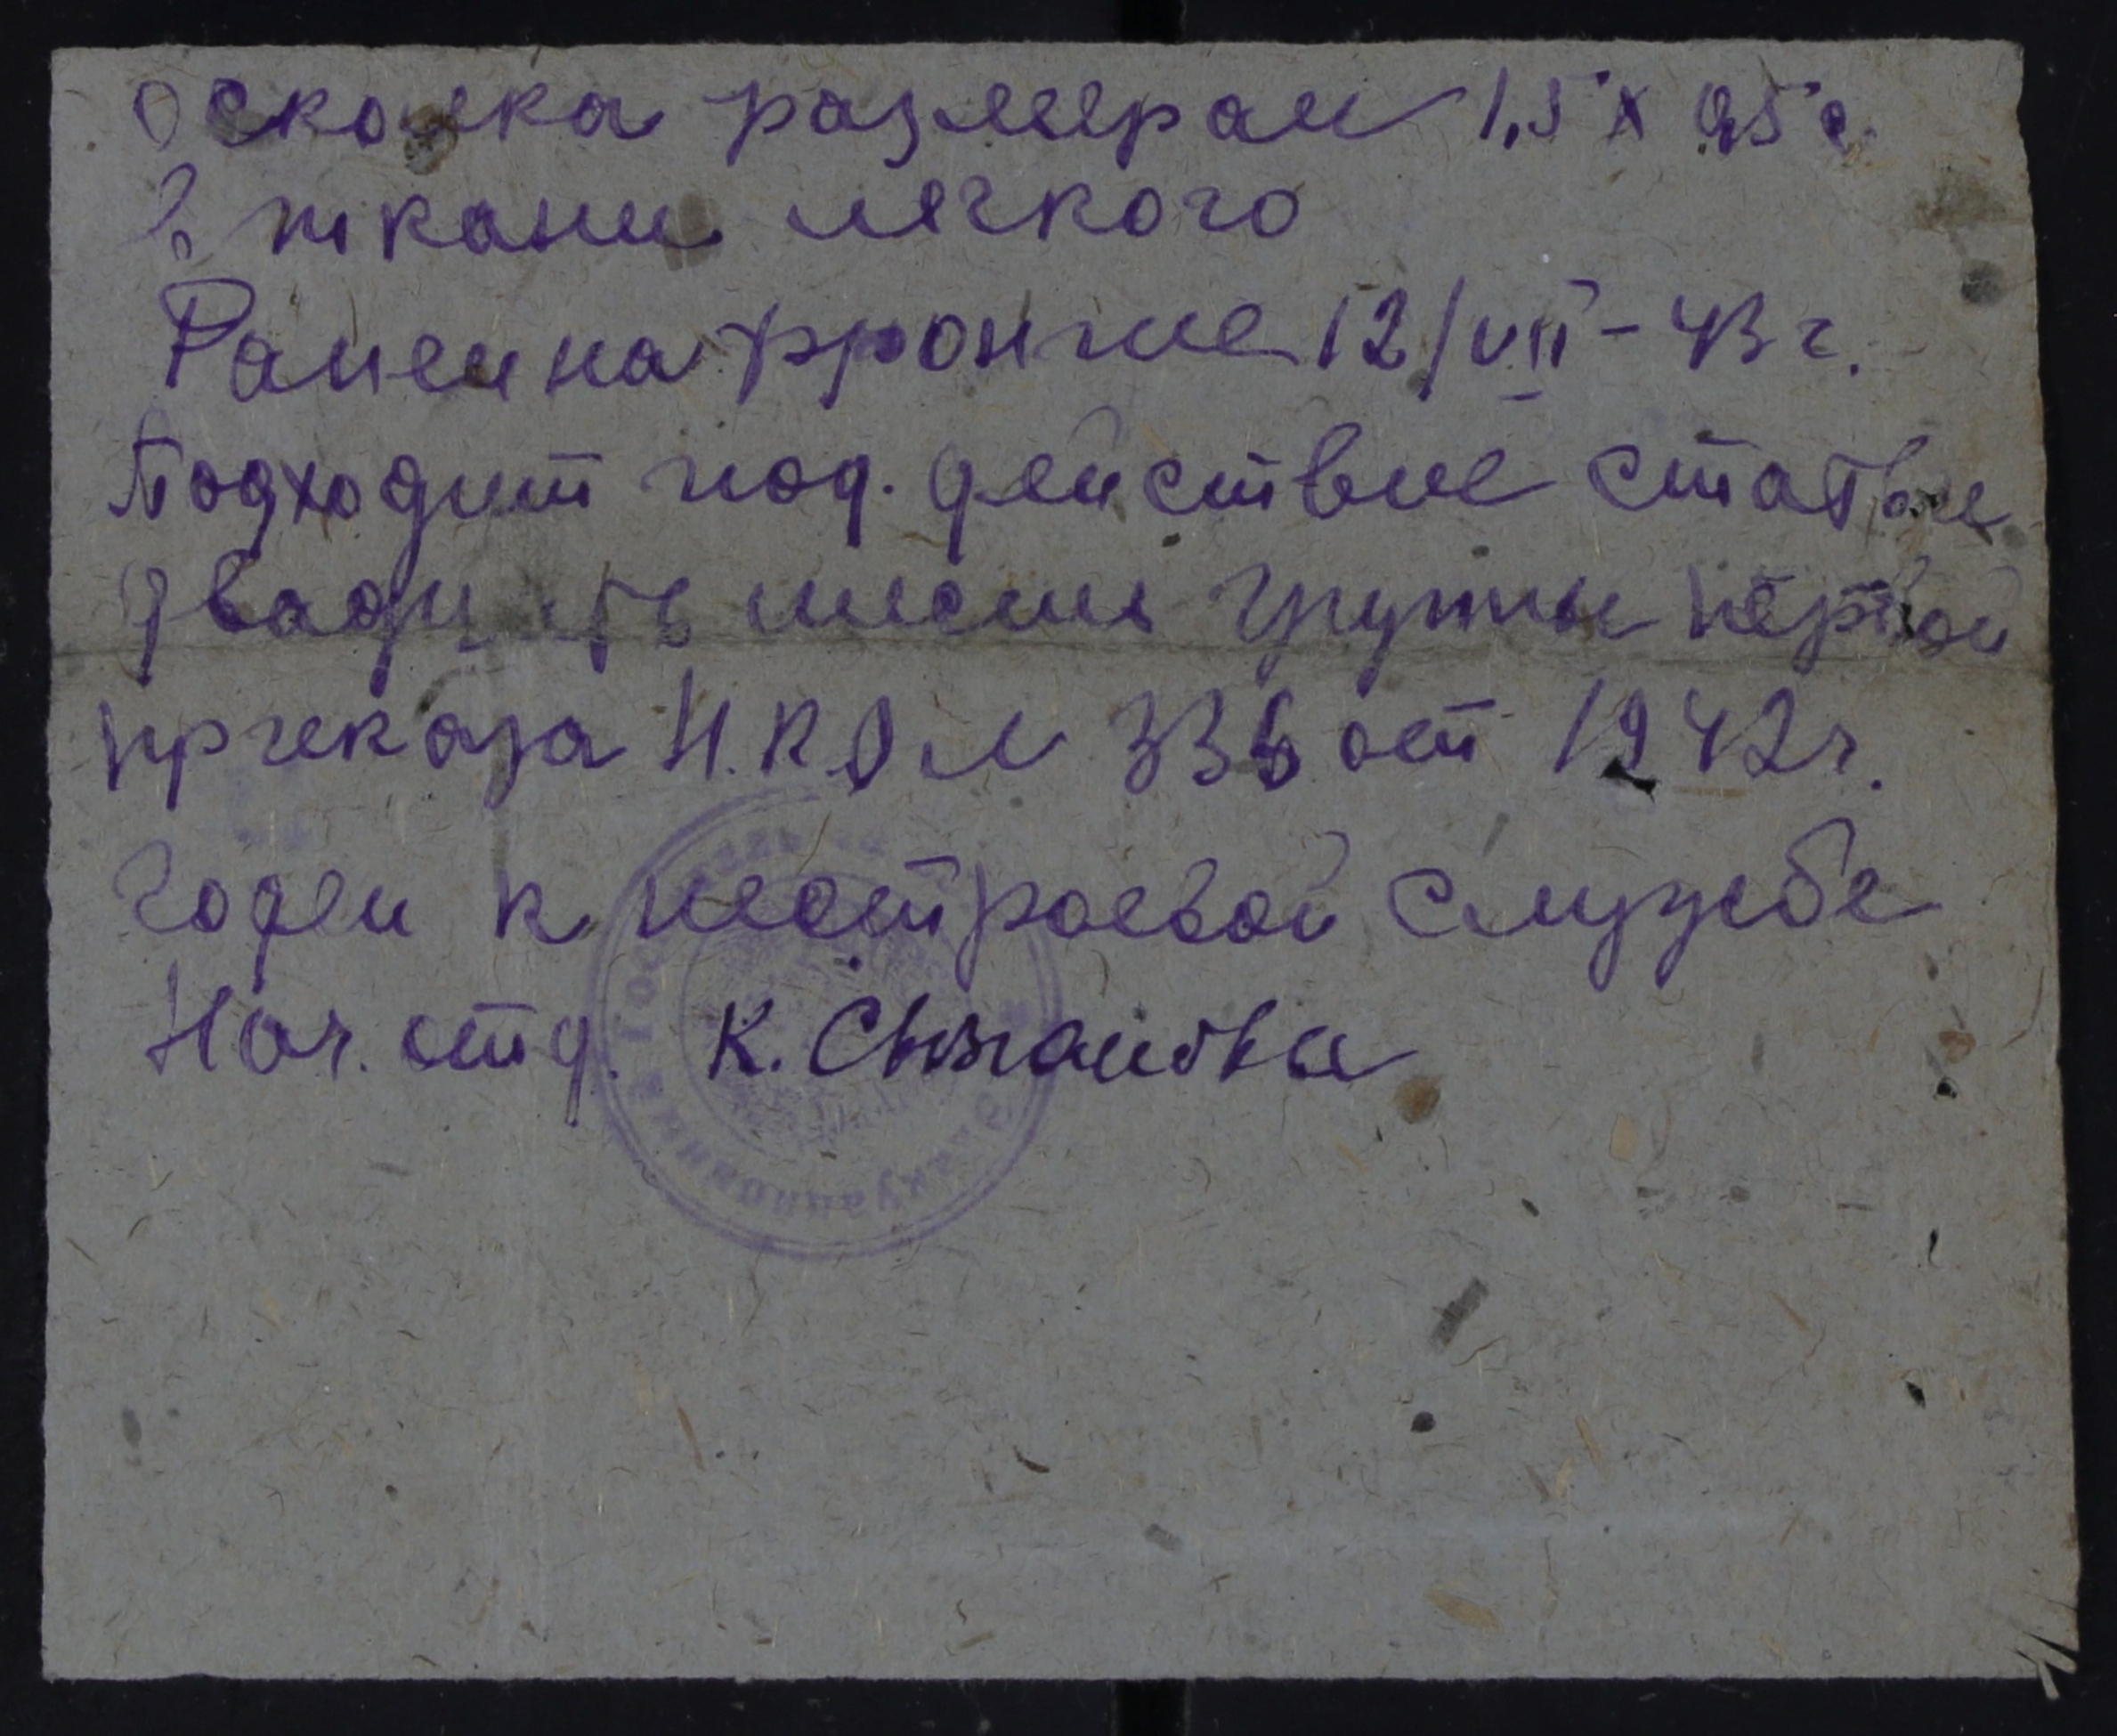 осколка размерам 1,5 х 0,5 с.
в ткани легкого
Ранен на фронте 12/VII - 43 г.
Подходит под. действие статьи
двадцать шесть группы первой
приказа Н.К.О № 336 от 1942 г.
Годен к нестроевой службе
Нач. отд. К.
Эвакуационный Госпиталь